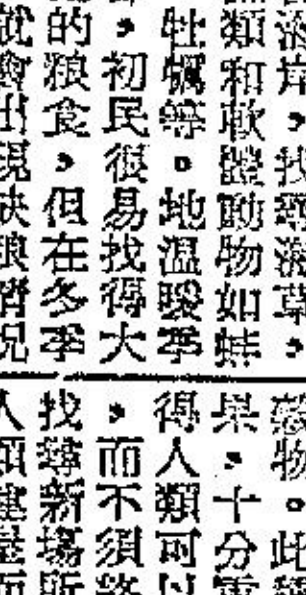 岸，找尋草，
類和軟體動物如蚌
牡蠣等。地溫暖季
，初民很易找得大
的粮食，但在冬季
就會出現缺粮
物。此
果，十分
得人類可
，而不須
找尋新場所
人類建屋而